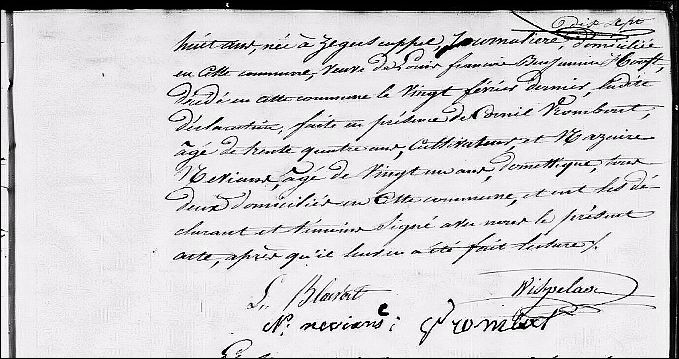 dix sept
huit ans, née à Zegerscappel, Journalière, domiciliée
en cette commune, veuve de Louis francois Benjamin
décédé en cette commune le vingt février dernier, ladite
déclaration, faite en présence de
âgé de trente quatre ans, Cultivateur, et Nazaire
Neviani, âgé de Vingt un ans, domestique, tous
deux domiciliés en Cette commune, et ont les dé
clarant et témoins signé avec nous le présent
acte, après qu'il leur en a été fait lecture /.
L.
N. neviani